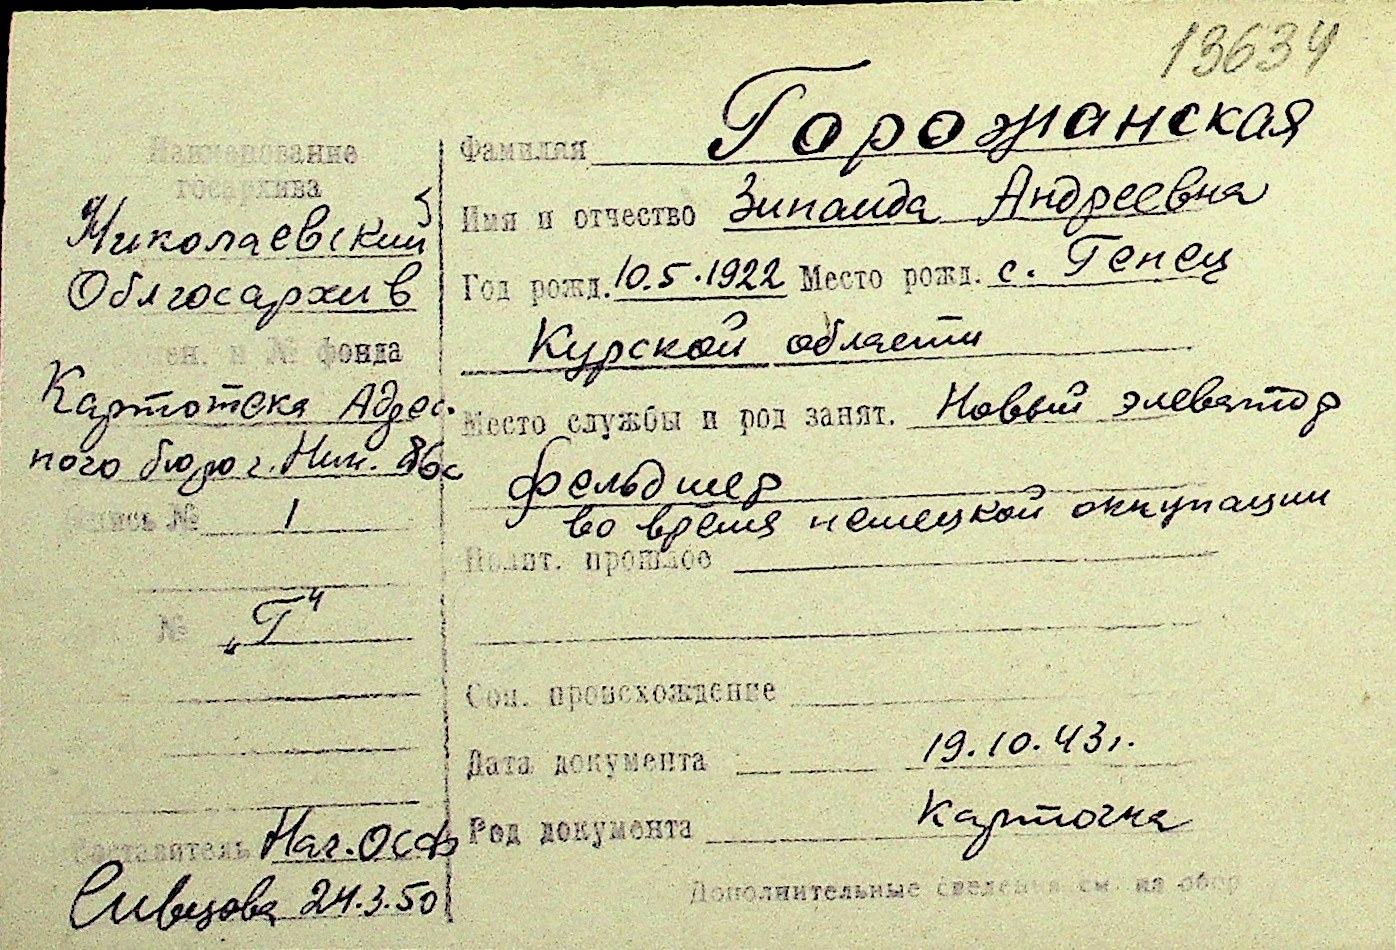 13634
Наименование
госархива
Николаевский
Облгосархив
фонда
Картотека Адрес-
ного бюро г. Ник.
опись № 1
№ „Г"
Составитель Нач. ОСФ
Сивцова 24.3.50
Фамилия Горожанская
Имя и отчество Зинаида Андреевна
Год рожд. 10.5.1922 Место рожд. с. Генец
Курской области
Место службы и род занят. Новый элеватор
фельдшер
во время немецкой оккупации
Полит. прошлое
Соц. происхождение
Дата документа 19.10.43г.
Род документа Карточка
Дополнительные сведения см. на обор